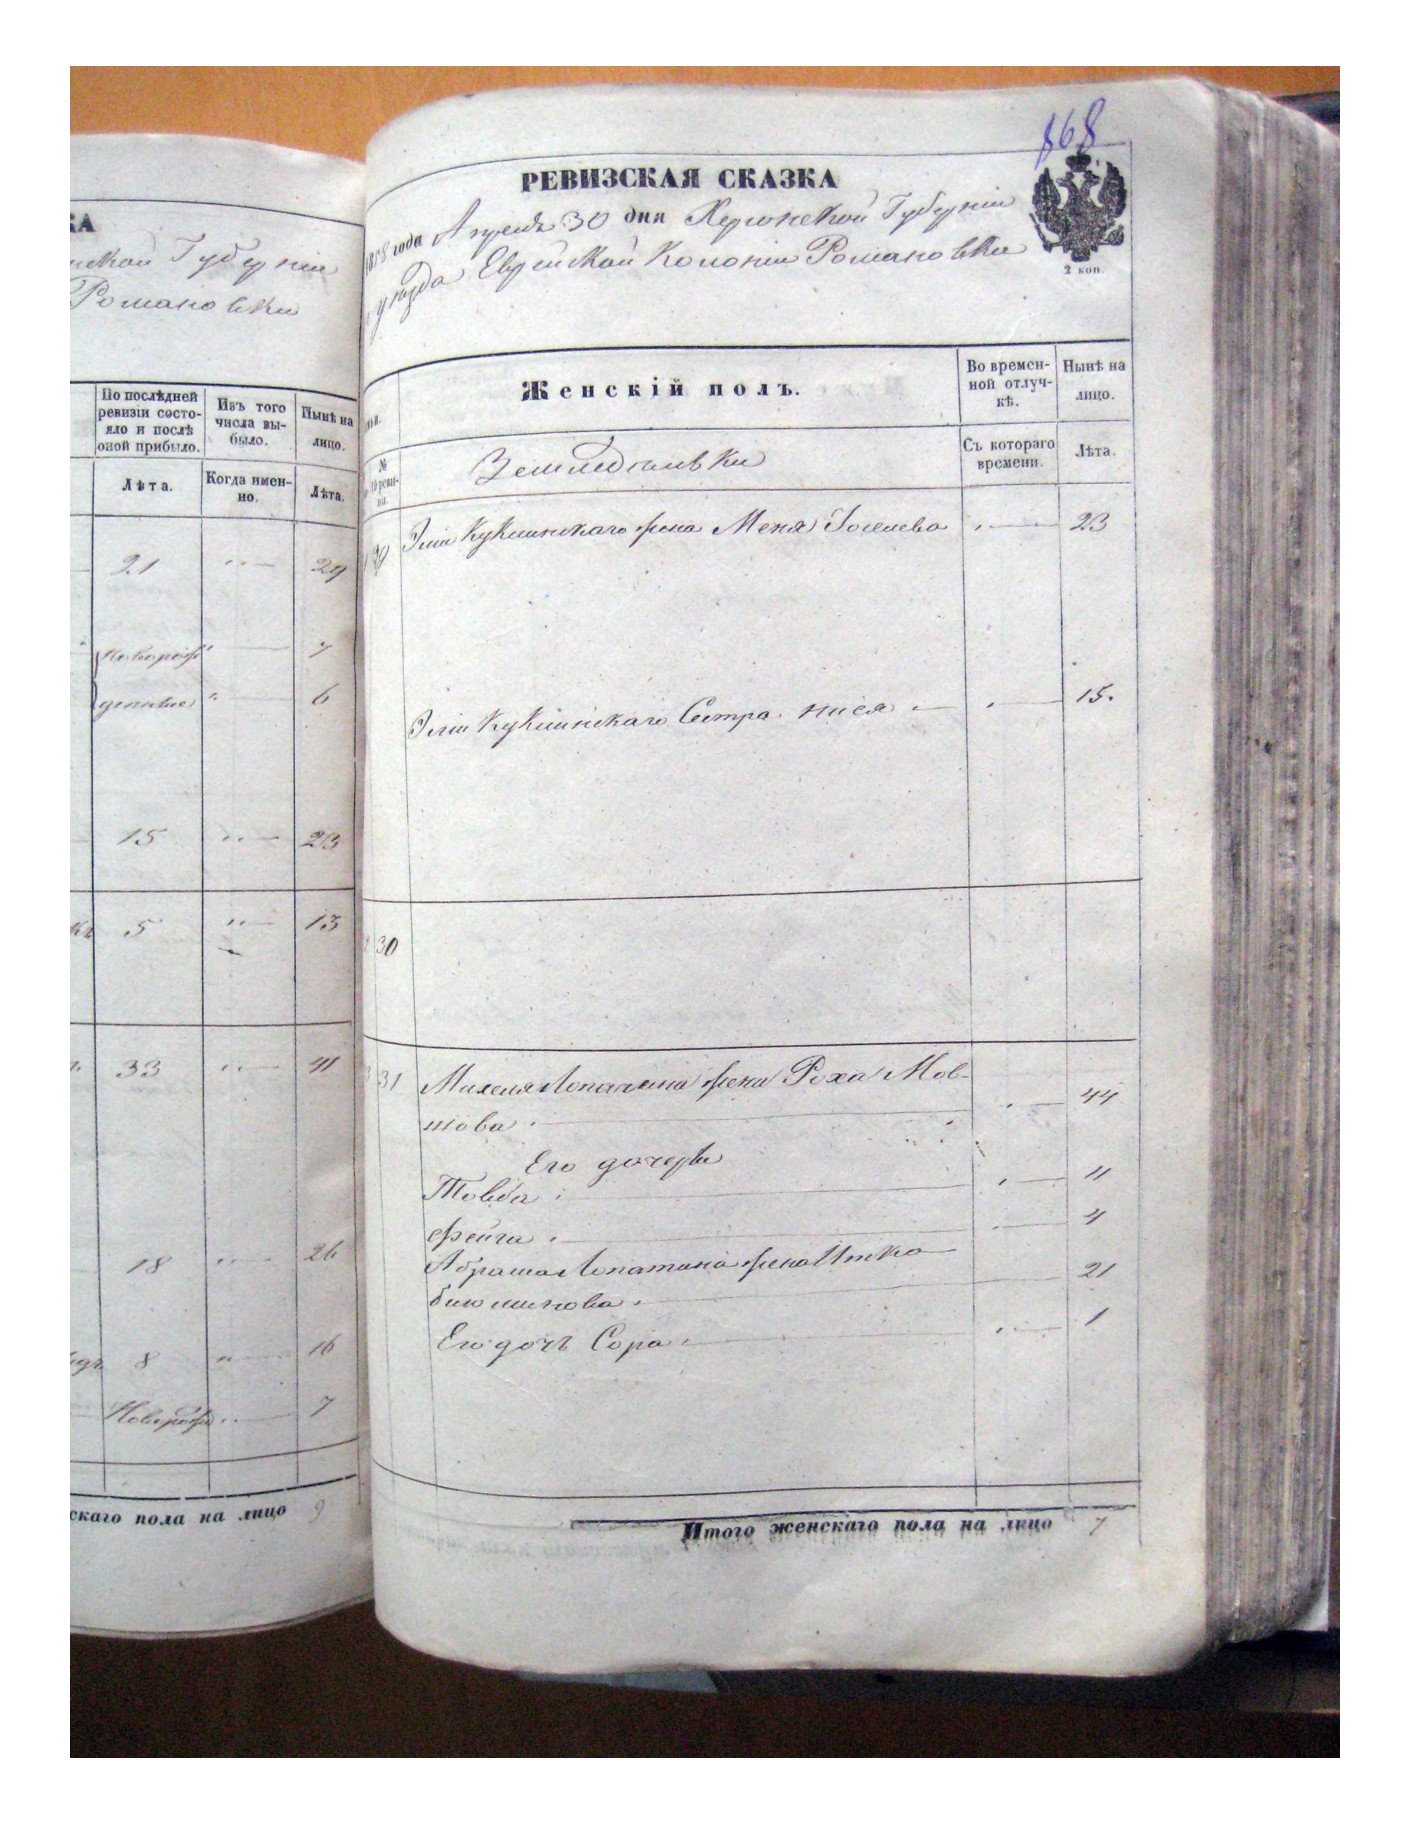 КА
Губерніи
Романовки
По послѣдней
ревизіи состо-
яло и послѣ
оной прибыло.
Изъ того
числа вы-
было.
Нынѣ на
лицо.
Лѣта.
Когда имен-
но.
Лѣта.
21 29
новорож 7
денные 6
15 23
5 13
33 41
18 26
8 16
Новорож 7
скаго пола на лицо 9
868
РЕВИЗСКАЯ СКАЗКА
1858 года Апреля 30 дня Херсонской Губерніи
уезда Еврейской Колоніи Романовки
2 коп.
Женскій полъ.
Во времен-
ной отлуч-
кѣ.
Нынѣ на
лицо.
№
Земледельки
Съ котораго
времени.
Лѣта.
29 Эли Кукшинскаго жена Меня Госелева 23
Эли Кукшинскаго Сестра 15.
30
31 Лопатина жена Роха Мов-
шова 44
Его дочери
Товба 11
Фейга 4
Абрама Лопатина жена Итка
21
Его дочь Сора 1
Итого женскаго пола на лицо 7